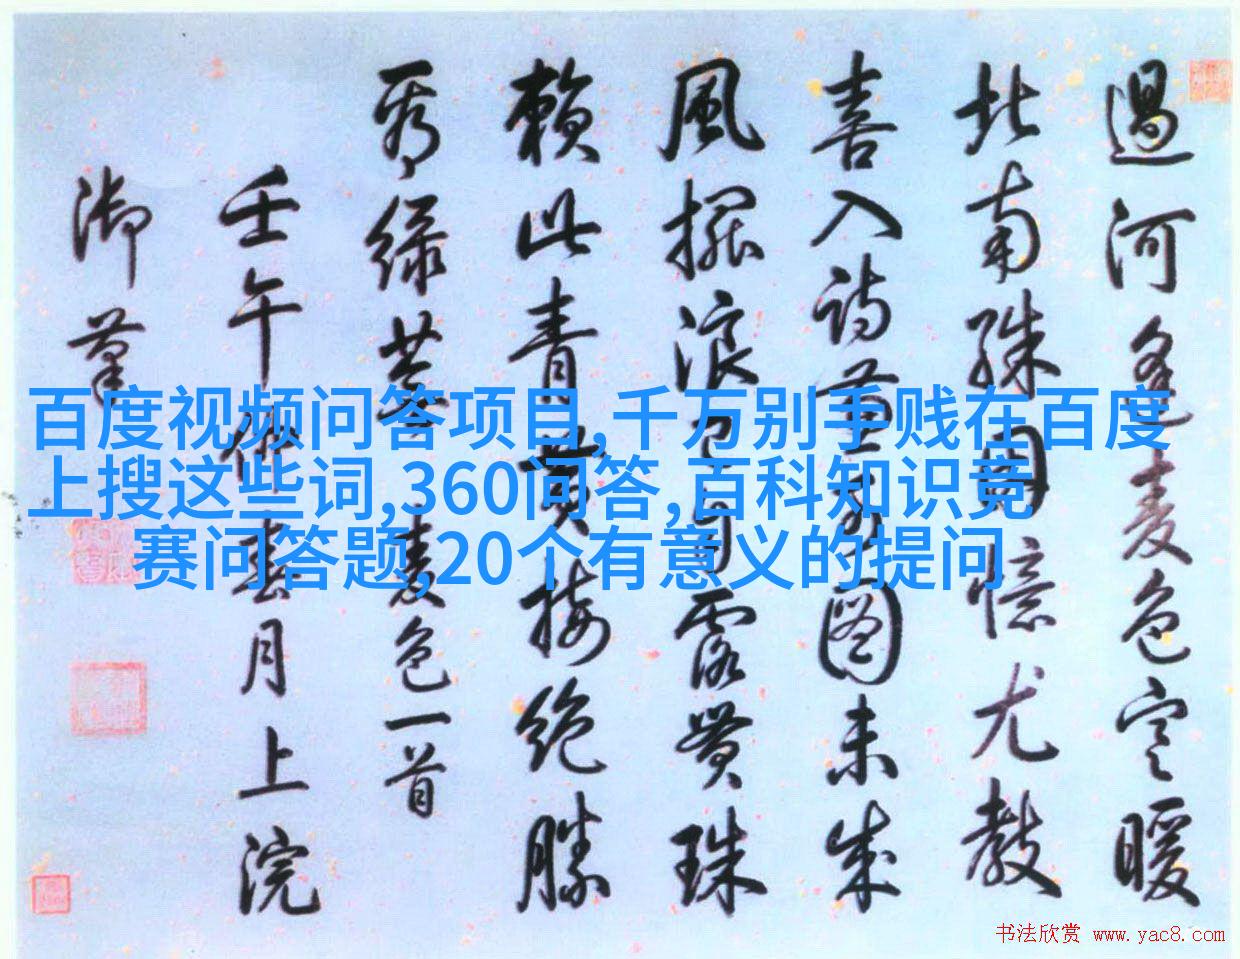 過河逢麦色寒暖
北南殊因憶尤教
喜入詩圖未成
風擺浪露貫珠
賴此青黄接絶勝
看緑麦色一首
壬午仲春月上浣
御筆
百度视频问答项目,千万别手贱在百度
上搜这些词,360问答,百科知识竞
赛问答题,20个有意义的提问
书法欣赏 www.yac8.com